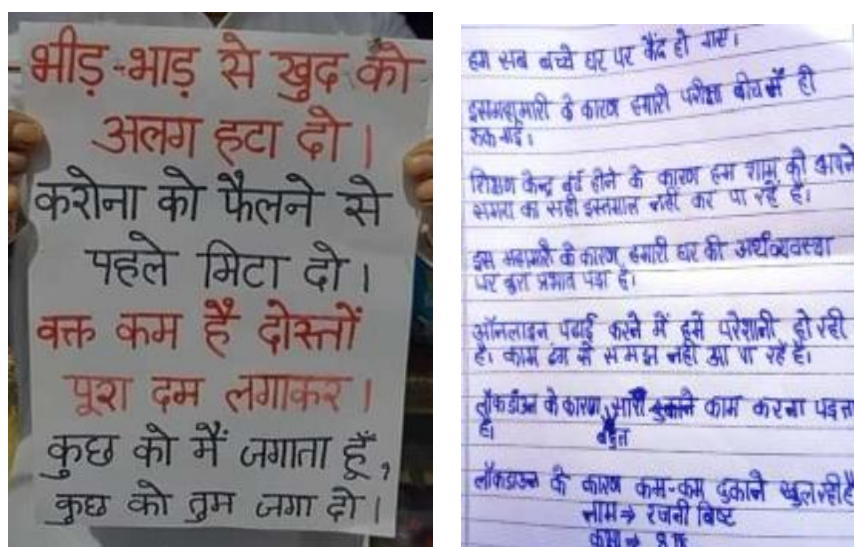 भीड़-भाड़ से खुद को
अलग हटा दो।
करोना को फैलने से
पहले मिटा दो।
वक्त कम है दोस्तों
पूरा दम लगाकर।
कुछ को मैं जगाता हूँ,
कुछ को तुम जगा दो।
हम सब बच्चे घर पर कैद हो गए।
के कारण हमारी परीक्षा बीच में ही
रुक गई।
शिक्षण केन्द्र बंद होने के कारण हम शाम को अपने
समय का सही इस्तेमाल नहीं कर पा रहे है।
इस महामारी के कारण हमारी घर की अर्थव्यवस्था
पर बुरा प्रभाव पड़ा है।
ऑनलाइन पढाई करने में हमें परेशानी हो रही
है। काम ढंग से समझ नहीं आ पा रहे है।
लॉकडाउन के कारण काम करना पड़ता
है। बहुत
लॉकडाउन के कारण कम-कम दुकाने खुल रही है
नाम → रजनी बिष्ट
कक्षा →